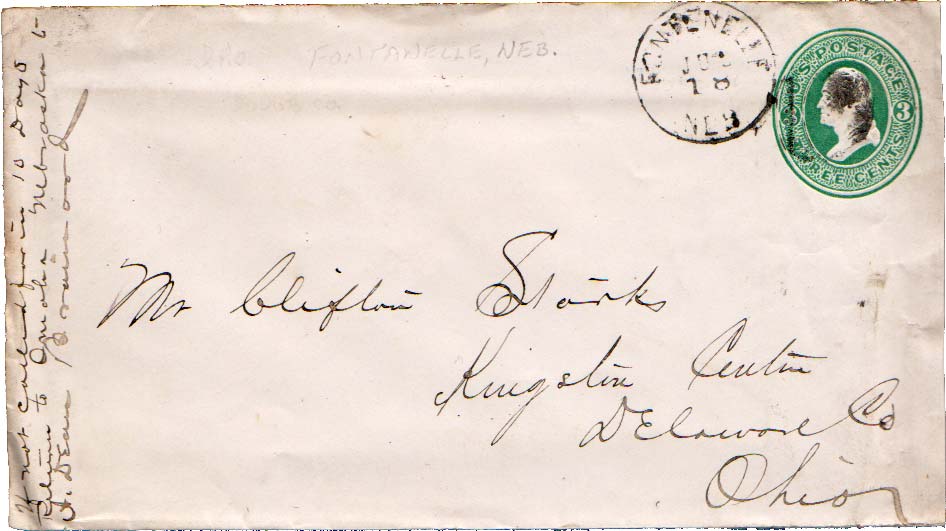 FONTANELLE, NEB.
FONTENELLE
JUL
18
NEB
U.S. POSTAGE
3
THREE CENTS
Mr Clifton Starks
Kingston Center
Delaware Co
Ohio
If not called for in 10 Days
Return to Omaha Nebraska to
V. Dean